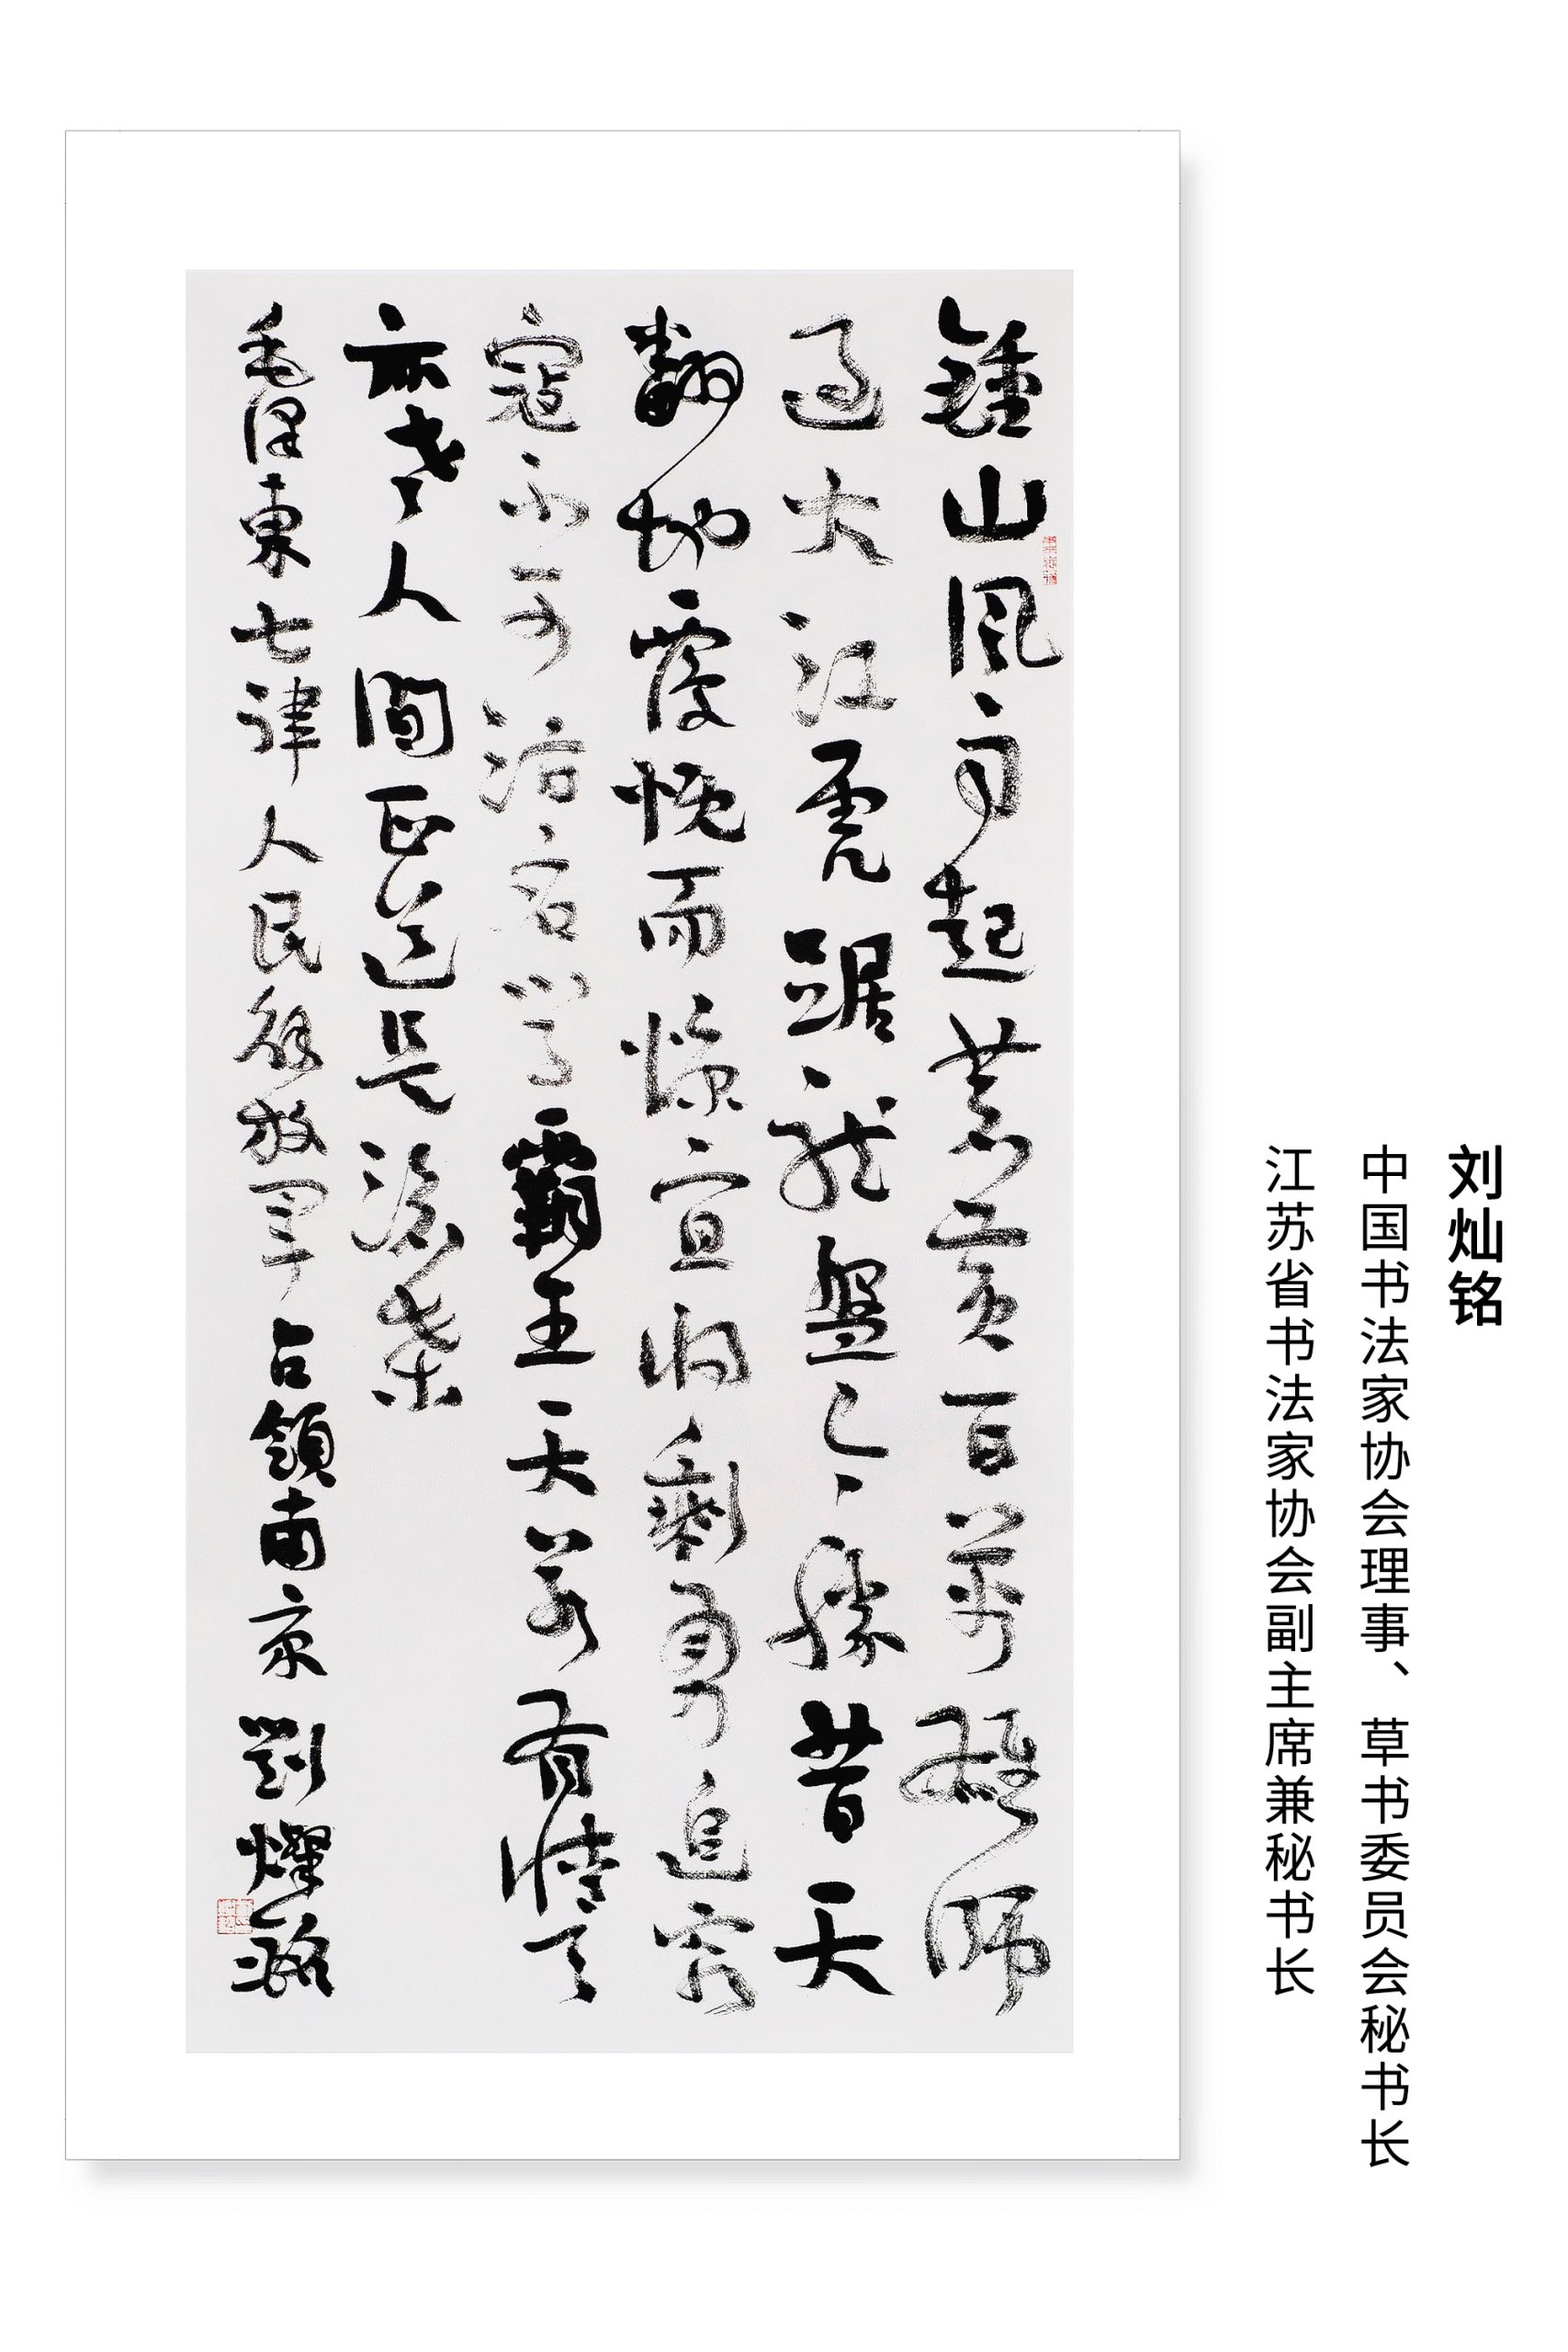 刘灿铭
中国书法家协会理事、草书委员会秘书长
江苏省书法家协会副主席兼秘书长
鍾山風雨起蒼黄百萬雄師
過大江虎踞龍盤今勝昔天
翻地覆慨而慷宜將剩勇追窮
寇不可沽名學霸王天若有情天
亦老人間正道是滄桑
毛澤東七律人民解放軍占領南京劉燦銘